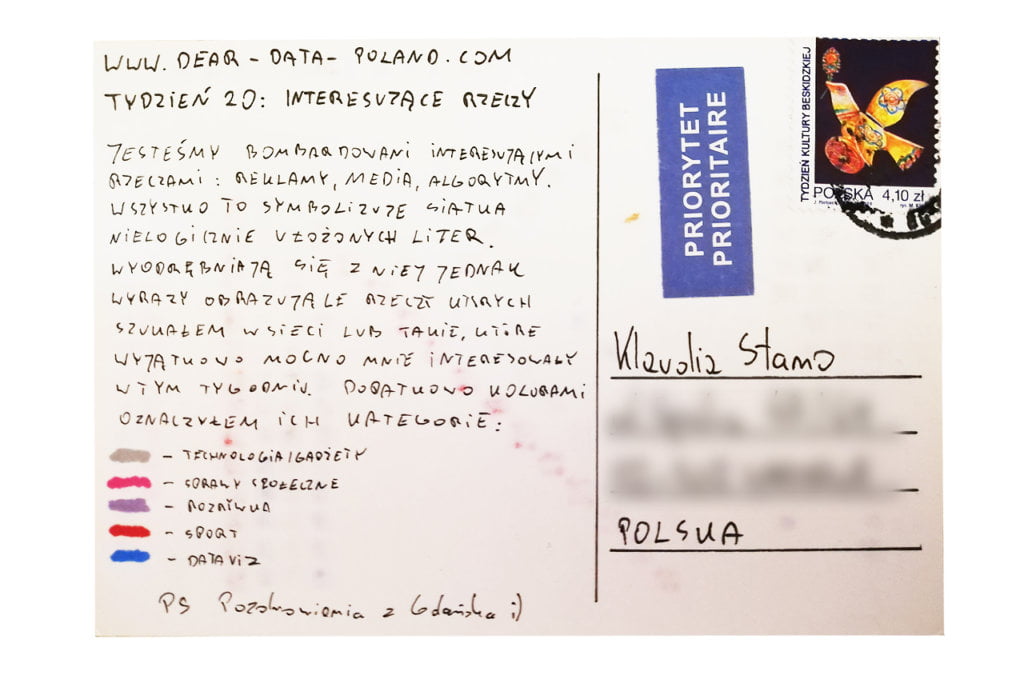 WWW.DEAR-DATA-POLAND.COM
TYDZIEŃ 20: INTERESUJĄCE RZECZY
JESTEŚMY BOMBARDOWANI INTERESUJĄCYMI
RZECZAMI: REKLAMY, MEDIA, ALGORYTMY.
WSZYSTKO TO SYMBOLIZUJE SIATKA
NIELOGICZNIE UŁOŻONYCH LITER.
WYODRĘBNIAJĄ SIĘ Z NIEJ JEDNAK
WYRAZY OBRAZUJĄCE RZECZY KTÓRYCH
SZUKAŁEM W SIECI LUB TAKIE, KTÓRE
WYJĄTKOWO MOCNO MNIE INTERESOWAŁY
W TYM TYGODNIU. DODATKOWO KOLORAMI
OZNACZYŁEM ICH KATEGORIE:
- TECHNOLOGIA/GADŻETY
- SPRAWY SPOŁECZNE
- ROZRYWKA
- SPORT
- DATAVIZ
PS Pozdrowienia z Gdańska ;)
PRIORYTET
PRIORITAIRE
TYDZIEŃ KULTURY BESKIDZKIEJ
POLSKA 4,10 zł
Klaudia Stano
POLSKA